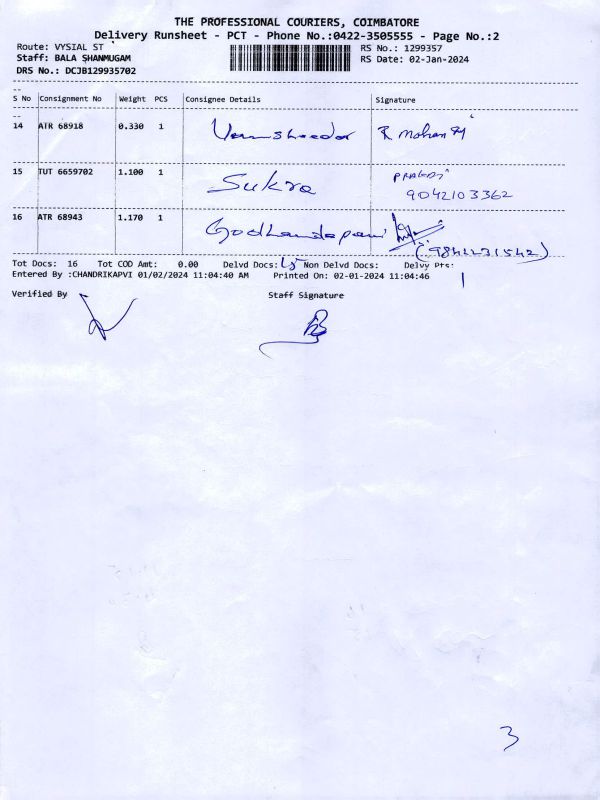 THE PROFESSIONAL COURIERS, COIMBATORE
Delivery Runsheet - PCT - Phone No.:0422-3505555 - Page No.:2
Route: VYSIAL ST RS No.: 1299357
Staff: BALA SHANMUGAM RS Date: 02-Jan-2024
DRS No.: DCJB129935702
S No Consignment No Weight PCS Consignee Details Signature
14 ATR 68918 0.330 1 R Mohan
15 TUT 6659702 1.100 1 Sukra
9042103362
16 ATR 68943 1.170 1 Godhandapani
Tot Docs: 16 Tot COD Amt: 0.00 Delvd Docs: 15 Non Delvd Docs: Delvy Pts:
1
Entered By :CHANDRIKAPVI 01/02/2024 11:04:40 AM Printed On: 02-01-2024 11:04:46
Verified By Staff Signature
3